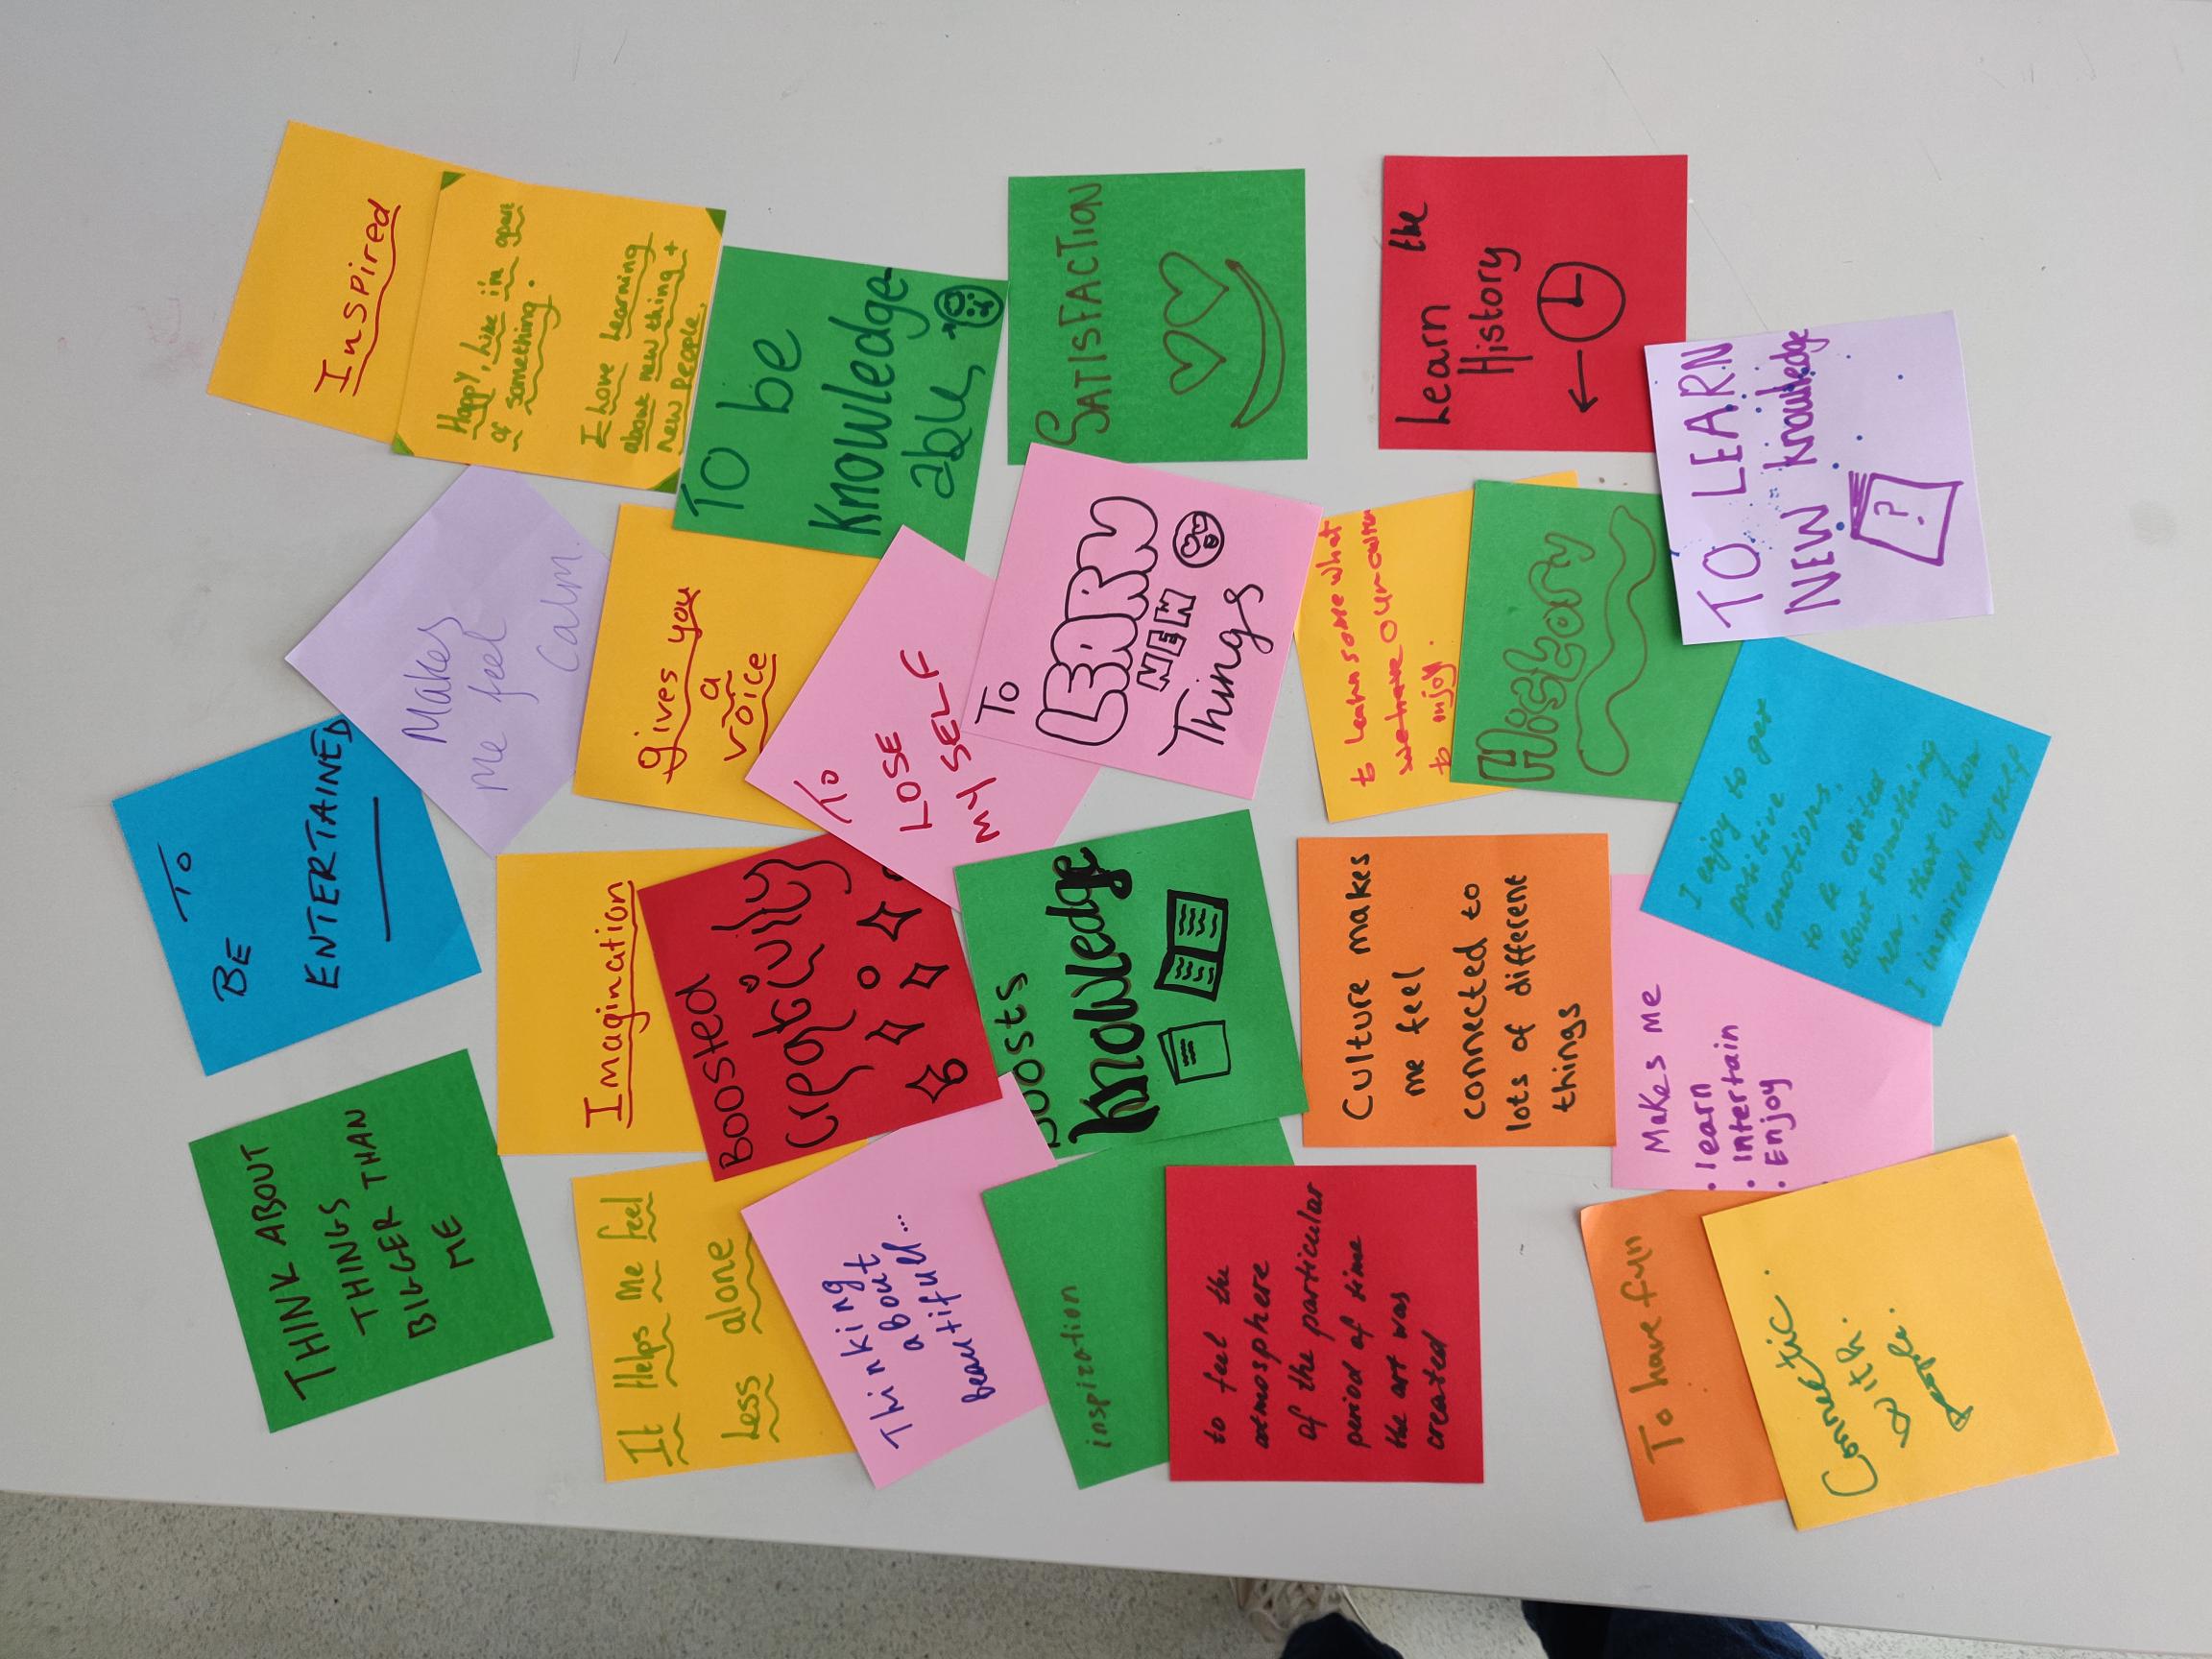 Inspired
Happy, like i'n apart
of something.
I love learning
about new thing +
new people.
TO be
Knowledge
able,
SATISFACTION
Learn the
History
TO LEARN
NEW knowledge
?
Makes
me feel
Calm
gives you
a
voice
TO
LOSE
MY SELF
To
LEARN
NEW
Things
to learn some what
to injoy.
History
TO
BE
ENTERTAINED
Imagination
BOOSted
creativity
boosts
knowledge
Culture makes
me feel
connected to
lots of different
things
Makes me
• learn
• intertain
• Enjoy
I enjoy to get
positive
emotions,
to be excited
about something
new, that is how
I inspired myself
THINK ABOUT
THINGS
BIGGER THAN
ME
It Helps me feel
Less alone
Thinking
about
beautifull...
inspiration
to feel the
atmosphere
of the particular
period of time
the art was
created
To have fun
Connectic.
with.
people.